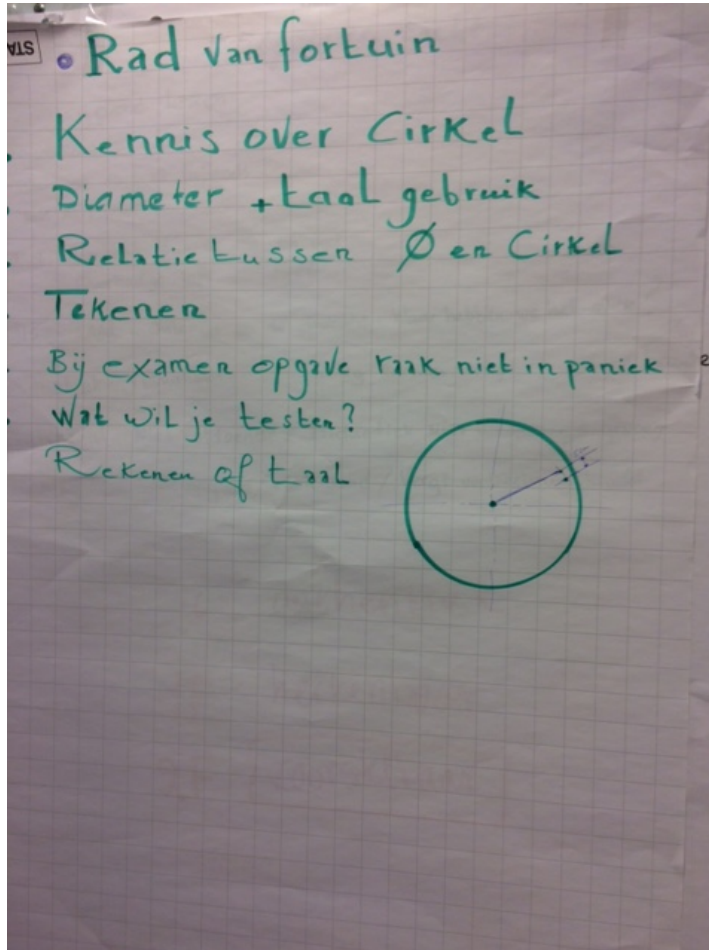 STA
• Rad van fortuin
Kennis over Cirkel
Diameter + taal gebruik
Relatie tussen Ø en Cirkel
Tekenen
Bij examen opgave raak niet in paniek
Wat wil je testen?
Rekenen of taal